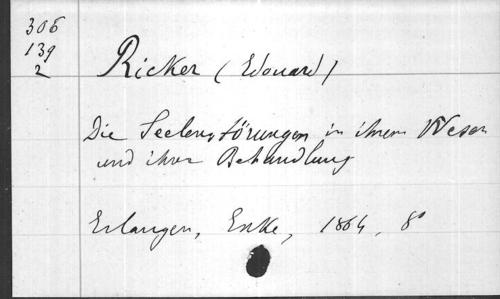 306
139
2
Ricker (Edouard)
Die Seelenstörungen in ihrem Wesen
und ihrer Behandlung
Erlangen, Enke, 1864, 8°